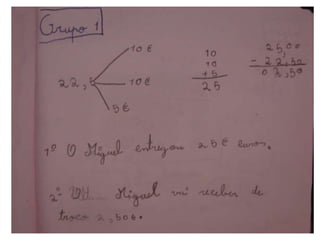 Grupo 1
10 €
22,5 10 €
5 €
10
10
+5
25
25,00
- 22,50
02,50
1º O Miguel entregou 25€ euros.
2º Miguel vai receber de
troco 2,50€.